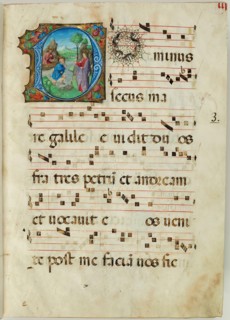 DOminus
secus ma
re galilee vidit duos
fratres petrũ et andream
et vocavit eos veni
te post me faciã vos fie
3.